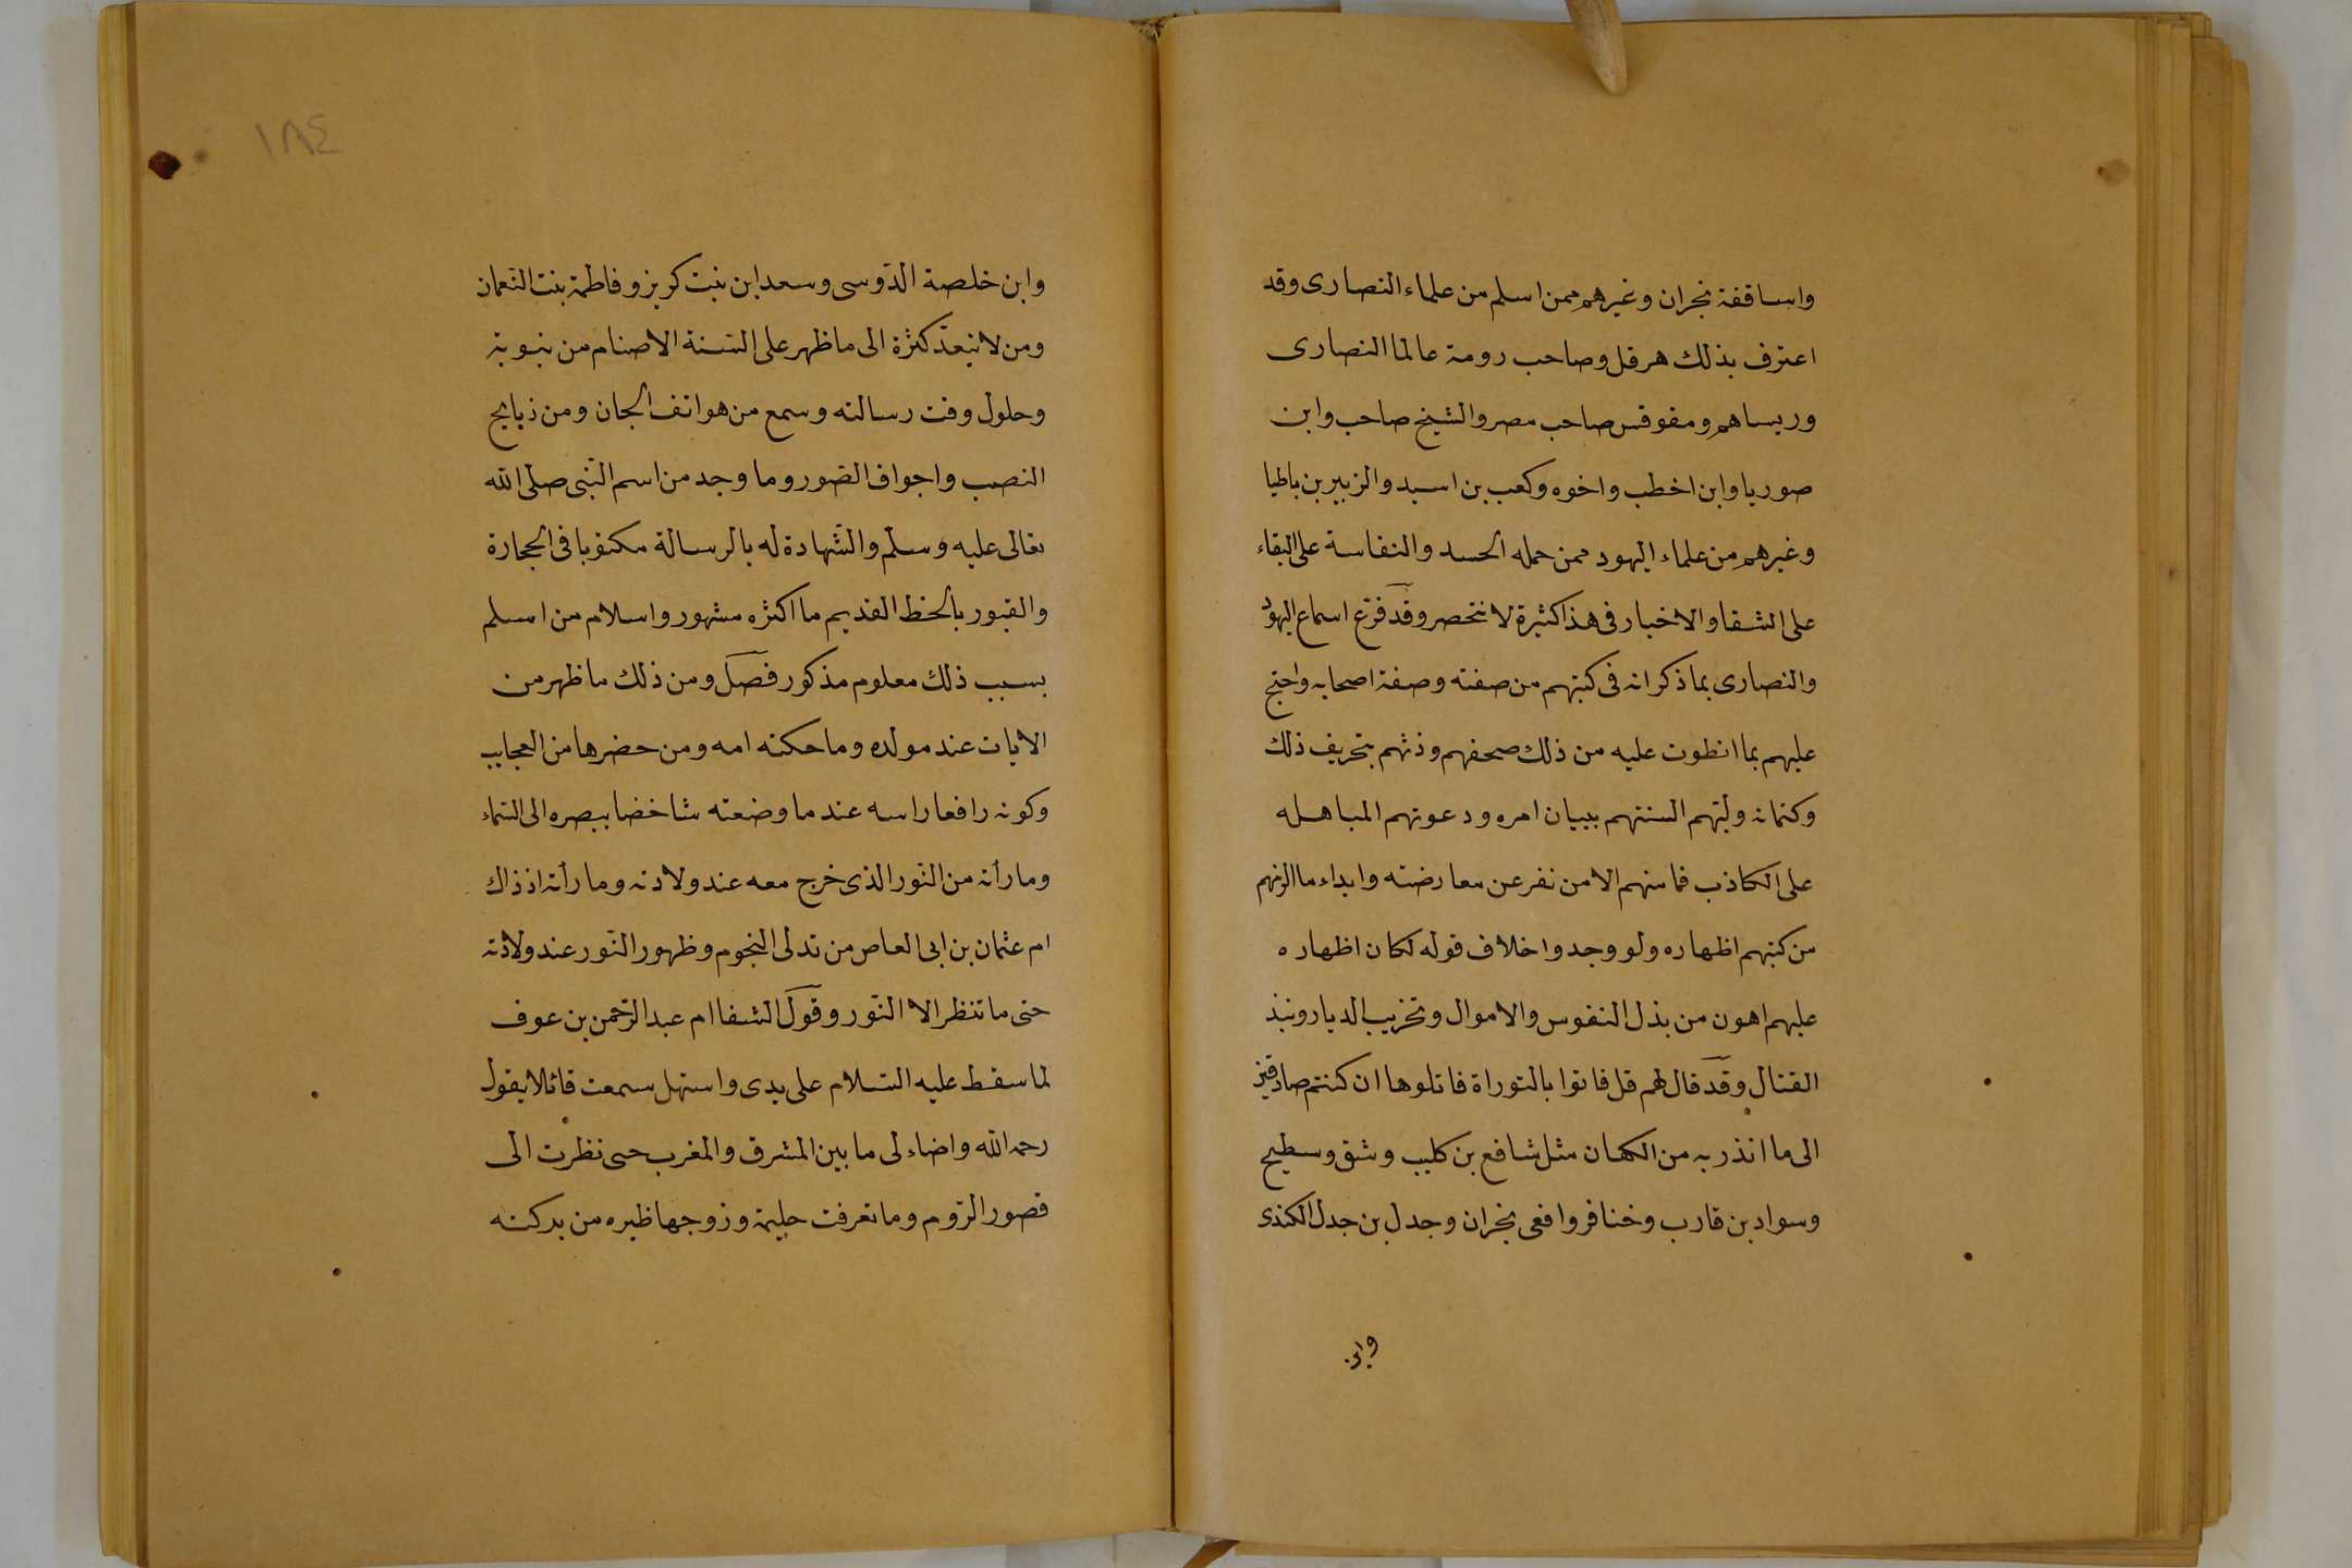 واساقفة نجران وغيرهم ممن اسلم من علماء النصارى وقد
اعترف بذلك هرقل وصاحب رومة عالما النصارى
وريساهم ومقوقس صاحب مصر والشيخ صاحب وابن
صوريا وابن اخطب واخوه وكعب بن اسيد والزبير بن باطيا
وغيرهم من علماء اليهود ممن حمله الحسد والنفاسة على البقاء
على الشقا والاخبار فى هذا كثيرة لا تنحصر وقد قرع اسماع اليهود
والنصارى بما ذكر انه فى كتبهم من صفته وصفة اصحابه واحتج
عليهم بما انطوت عليه من ذلك صحفهم وذمهم بتحريف ذلك
وكتمانه وليّهم السنتهم ببيان امره ودعوتهم المباهله
على الكاذب فما منهم الا من نفر عن معارضته وابداء ما الزمهم
من كتبهم اظهاره ولو وجدوا خلاف قوله لكان اظهاره
عليهم اهون من بذل النفوس والاموال وتخريب الديار ونبذ
القتال وقد قال لهم قل فاتوا بالتوراة فاتلوها ان كنتم صادقين
الى ما انذر به من الكهان مثل شافع بن كليب وشق وسطيح
وسواد بن قارب وخنافر وافعى نجران وجدل بن جدل الكندى
وابن
١٨٤
وابن خلصة الدّوسى وسعد ابن بنت كريز وفاطمة بنت النّعمان
ومن لا ينعدّ كثرة الى ما ظهر على السنة الاصنام من نبوته
وحلول وقت رسالته وسمع من هواتف الجان ومن ذبايح
النصب واجواف الصّور وما وجد من اسم النّبى صلى الله
تعالى عليه وسلّم والشّهادة له بالرسالة مكتوبا فى الحجارة
والقبور بالخط القديم ما اكثره مشهور واسلام من اسلم
بسبب ذلك معلوم مذكور فصل ومن ذلك ما ظهر من
الايات عند مولده وما حكته امه ومن حضرها من العجايب
وكونه رافعا راسه عند ما وضعته شاخصا ببصره الى السّماء
وما رأته من النّور الذى خرج معه عند ولادته وما رأته اذ ذاك
ام عثمان بن ابى العاص من تدلى النجوم وظهور النّور عند ولادته
حتى ما تنظر الا النّور وقول الشفا ام عبد الرّحمن بن عوف
لما سقط عليه السّلام على يدى واستهل سمعت قائلا يقول
رحمه الله واضاء لى ما بين المشرق والمغرب حتى نظرت الى
قصور الرّوم وما تعرفت حليمة وزوجها ظيره من بركته